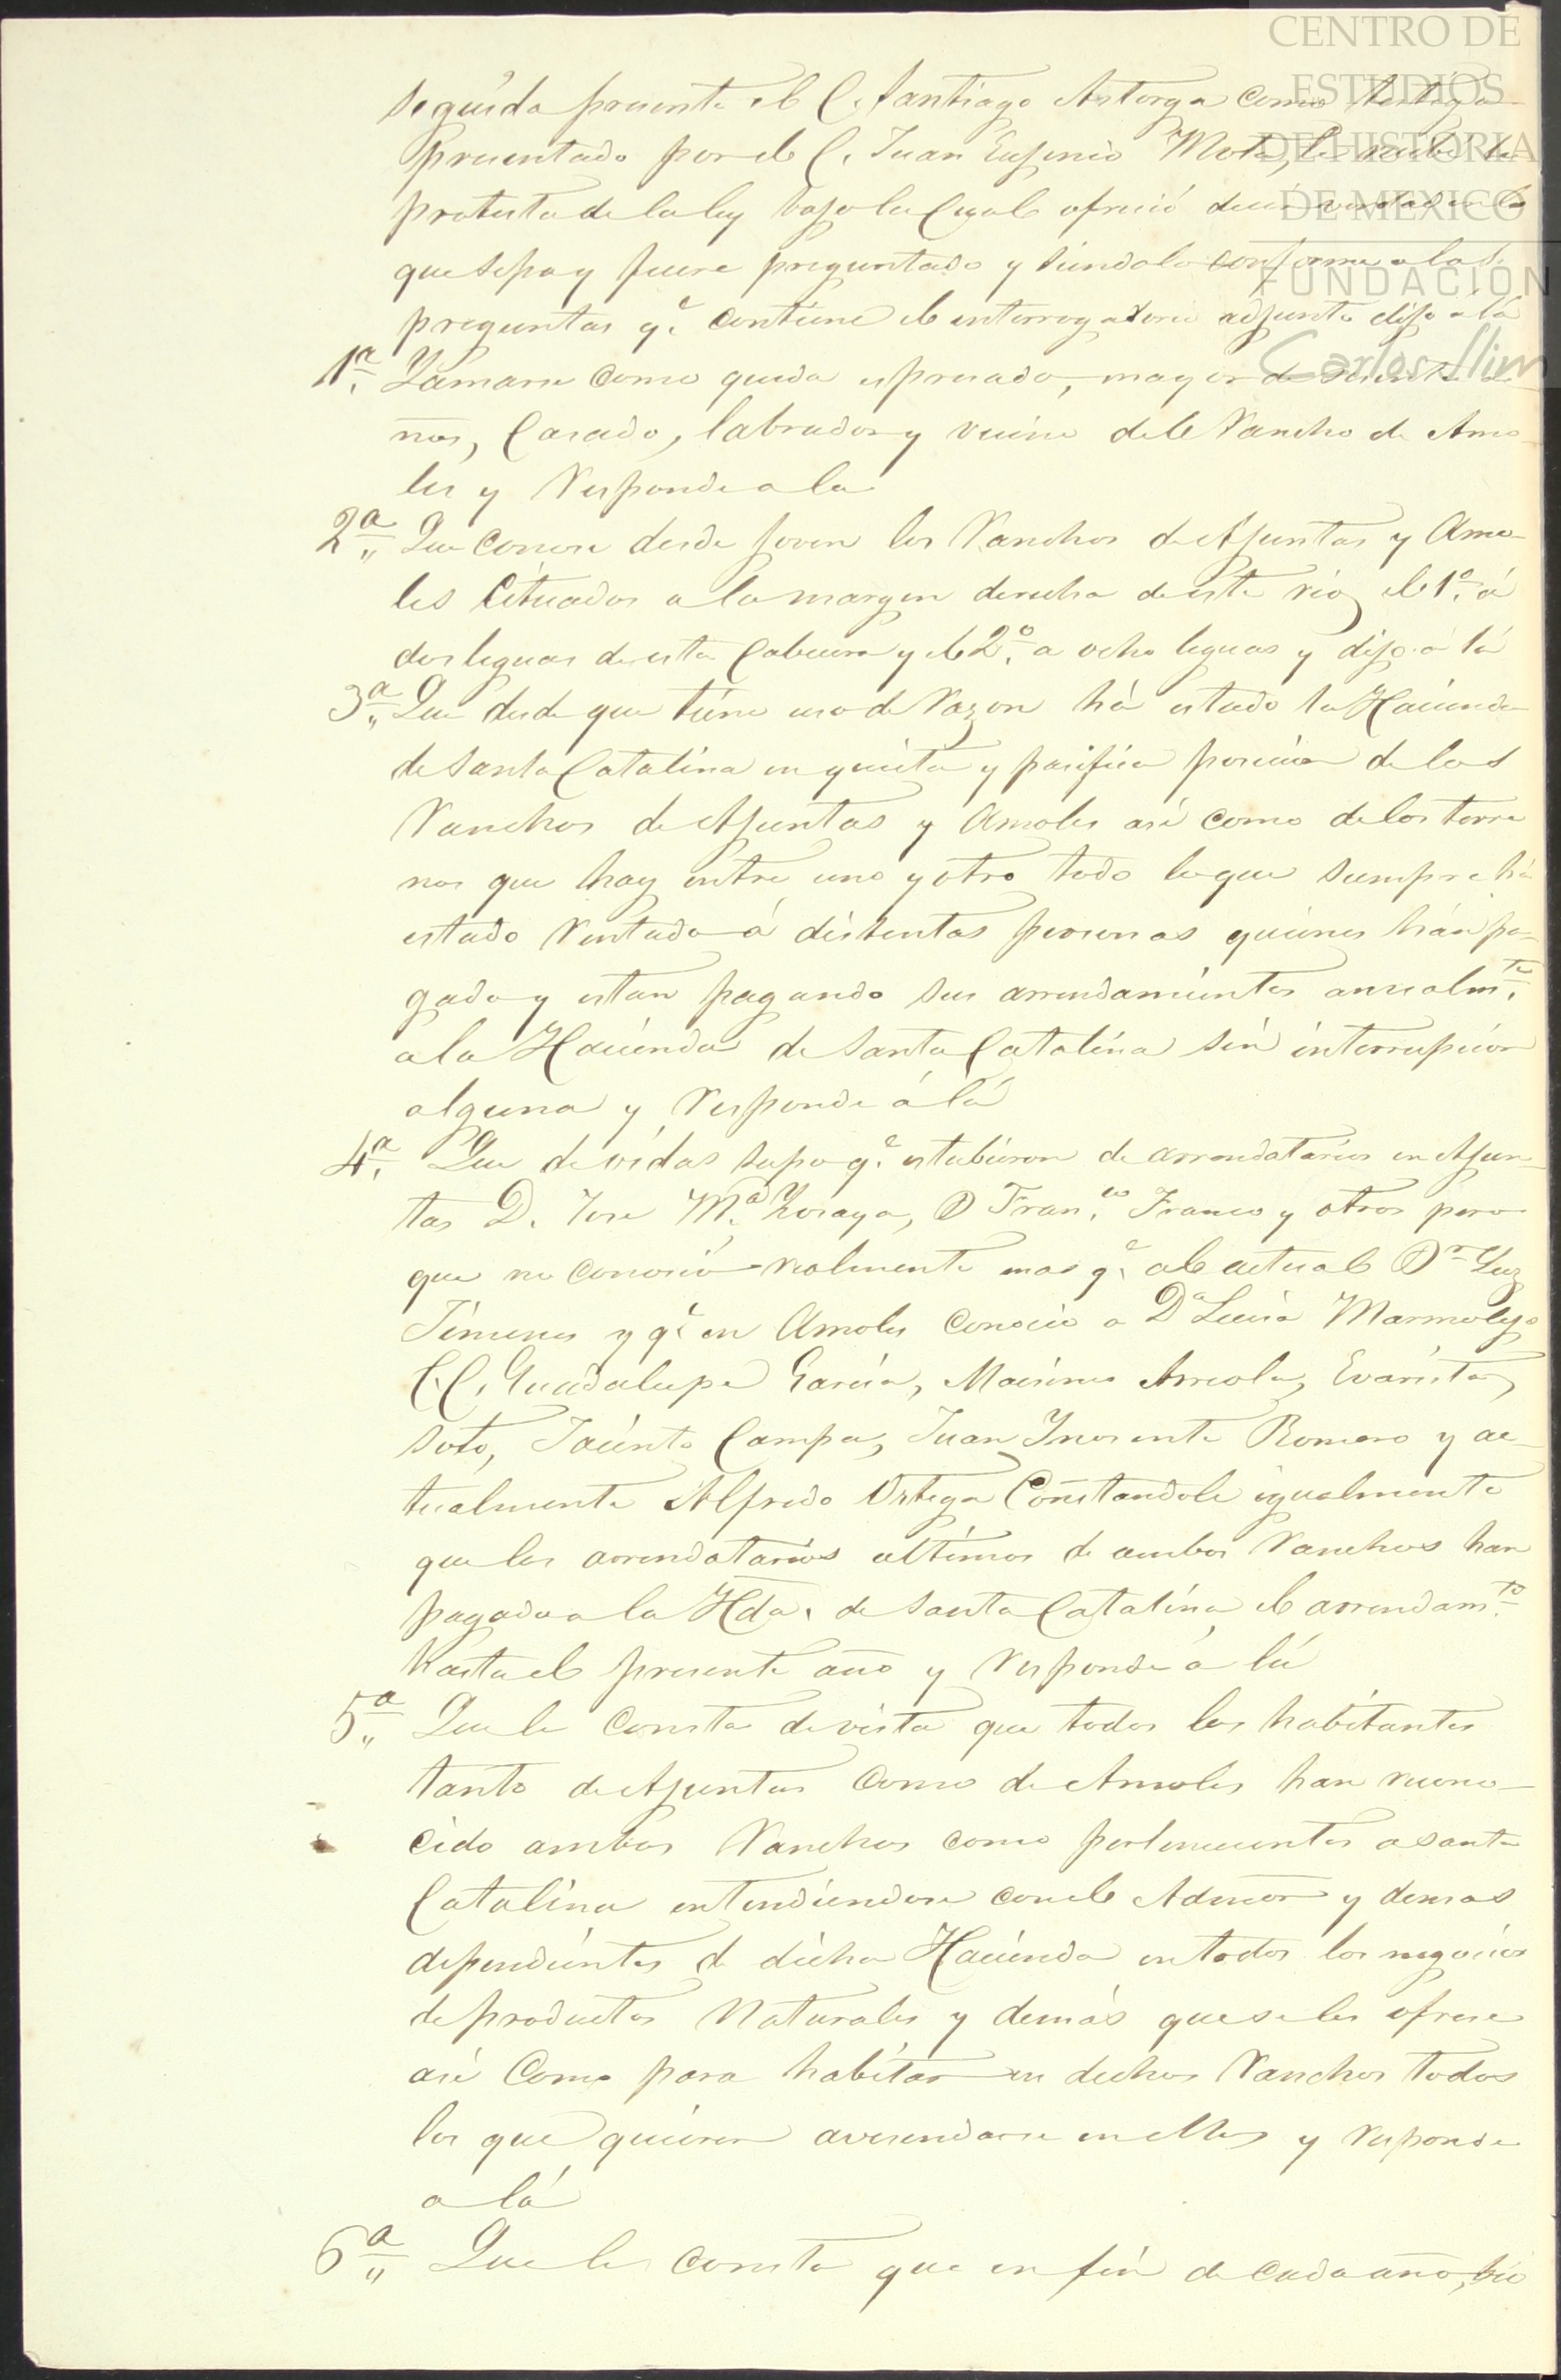 CENTRO DE
ESTUDIOS
DE HISTORIA
DE MEXICO
FUNDACIÓN
Carlos Slim
seguida presente el C. Santiago Astorga como testigo
presentado por el C. Juan Eugenio Mota, le recibí la
protesta de la ley bajo la cual ofrició decir verdad en lo
que sepa y fuere preguntado y siendolo conforme a las
preguntas q.e contiene el interrogatorio adjunto dijo á lá
1.a Llamarse como queda espresado, mayor de sesenta a
ños, Casado, labrador y vecino del Rancho de Amo-
les y Responde a la
2.a Que conose desde joven los Ranchos de Ajuntas y Amo-
les Cituados a la margen derecha de este rio, el 1.o á
dos leguas de esta Cabecera y el 2.o a ocho leguas y dijo á lá
3.a Que desde que tiene uso de Razon há estado la Hacienda
de Santa Catalina en quieta y pasifica posecion de los
Ranchos de Ajuntas y Amoles asi como de los terre
nos que hay entre uno y otro todo lo que siempre há
estado Rentado á distintas personas quienes hán pa-
gado y estan pagando sus arrendamientos anualm.te
a la Hacienda de Santa Catalina sin interrupcion
alguna y Responde á lá
4.a Que de oidas supo q.e estubieron de arrendatarios en Ajun-
tas D. Jose M.a Zoraya, D Fran.co Franco y otros pero
que no conosió realmente mas q.e al actual D.n Luz
Jimenes y q.e en Amoles conocio a D.a Lucia Marmolejo
C.C. Guadalupe Garcia, Macsimo Arreola, Evaristo
Soto, Jacinto Campa, Juan Ynosente Romero y ac-
tualmente Alfredo Ortega Constandole igualmente
que los arrendatarios ultimos de ambos Ranchos han
pagado a la Hda. de Santa Catalina el arrendam.to
hasta el presente año y Responde á lá
5.a Que le consta de vista que todos los habitantes
tanto de Ajuntas como de Amoles han recono-
cido ambos Ranchos como pertenecientes a Santa
Catalina entendiendose con el Admor y demas
dependientes d dicha Hacienda en todos los negocios
de productos Naturales y demás que se les ofrese
asi Como para habitar en dichos Ranchos todos
los que quieren avesendarse en ellos y responde
a lá
6.a Que le consta que en fin de cada año,